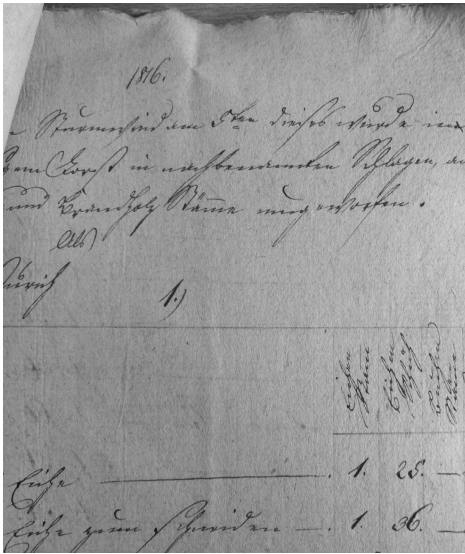 1816.
Sturmwind am 5ten dieses wurde in
dem Forst in nachbenannten Schlagen, an
und Brandholz Stämme umgeworfen.
Als
1.)
Eichen Stäme
Eichen
Buchen Stäme
Eiche — 1. 25. —
Eiche zum Schneiden — 1. 36. —